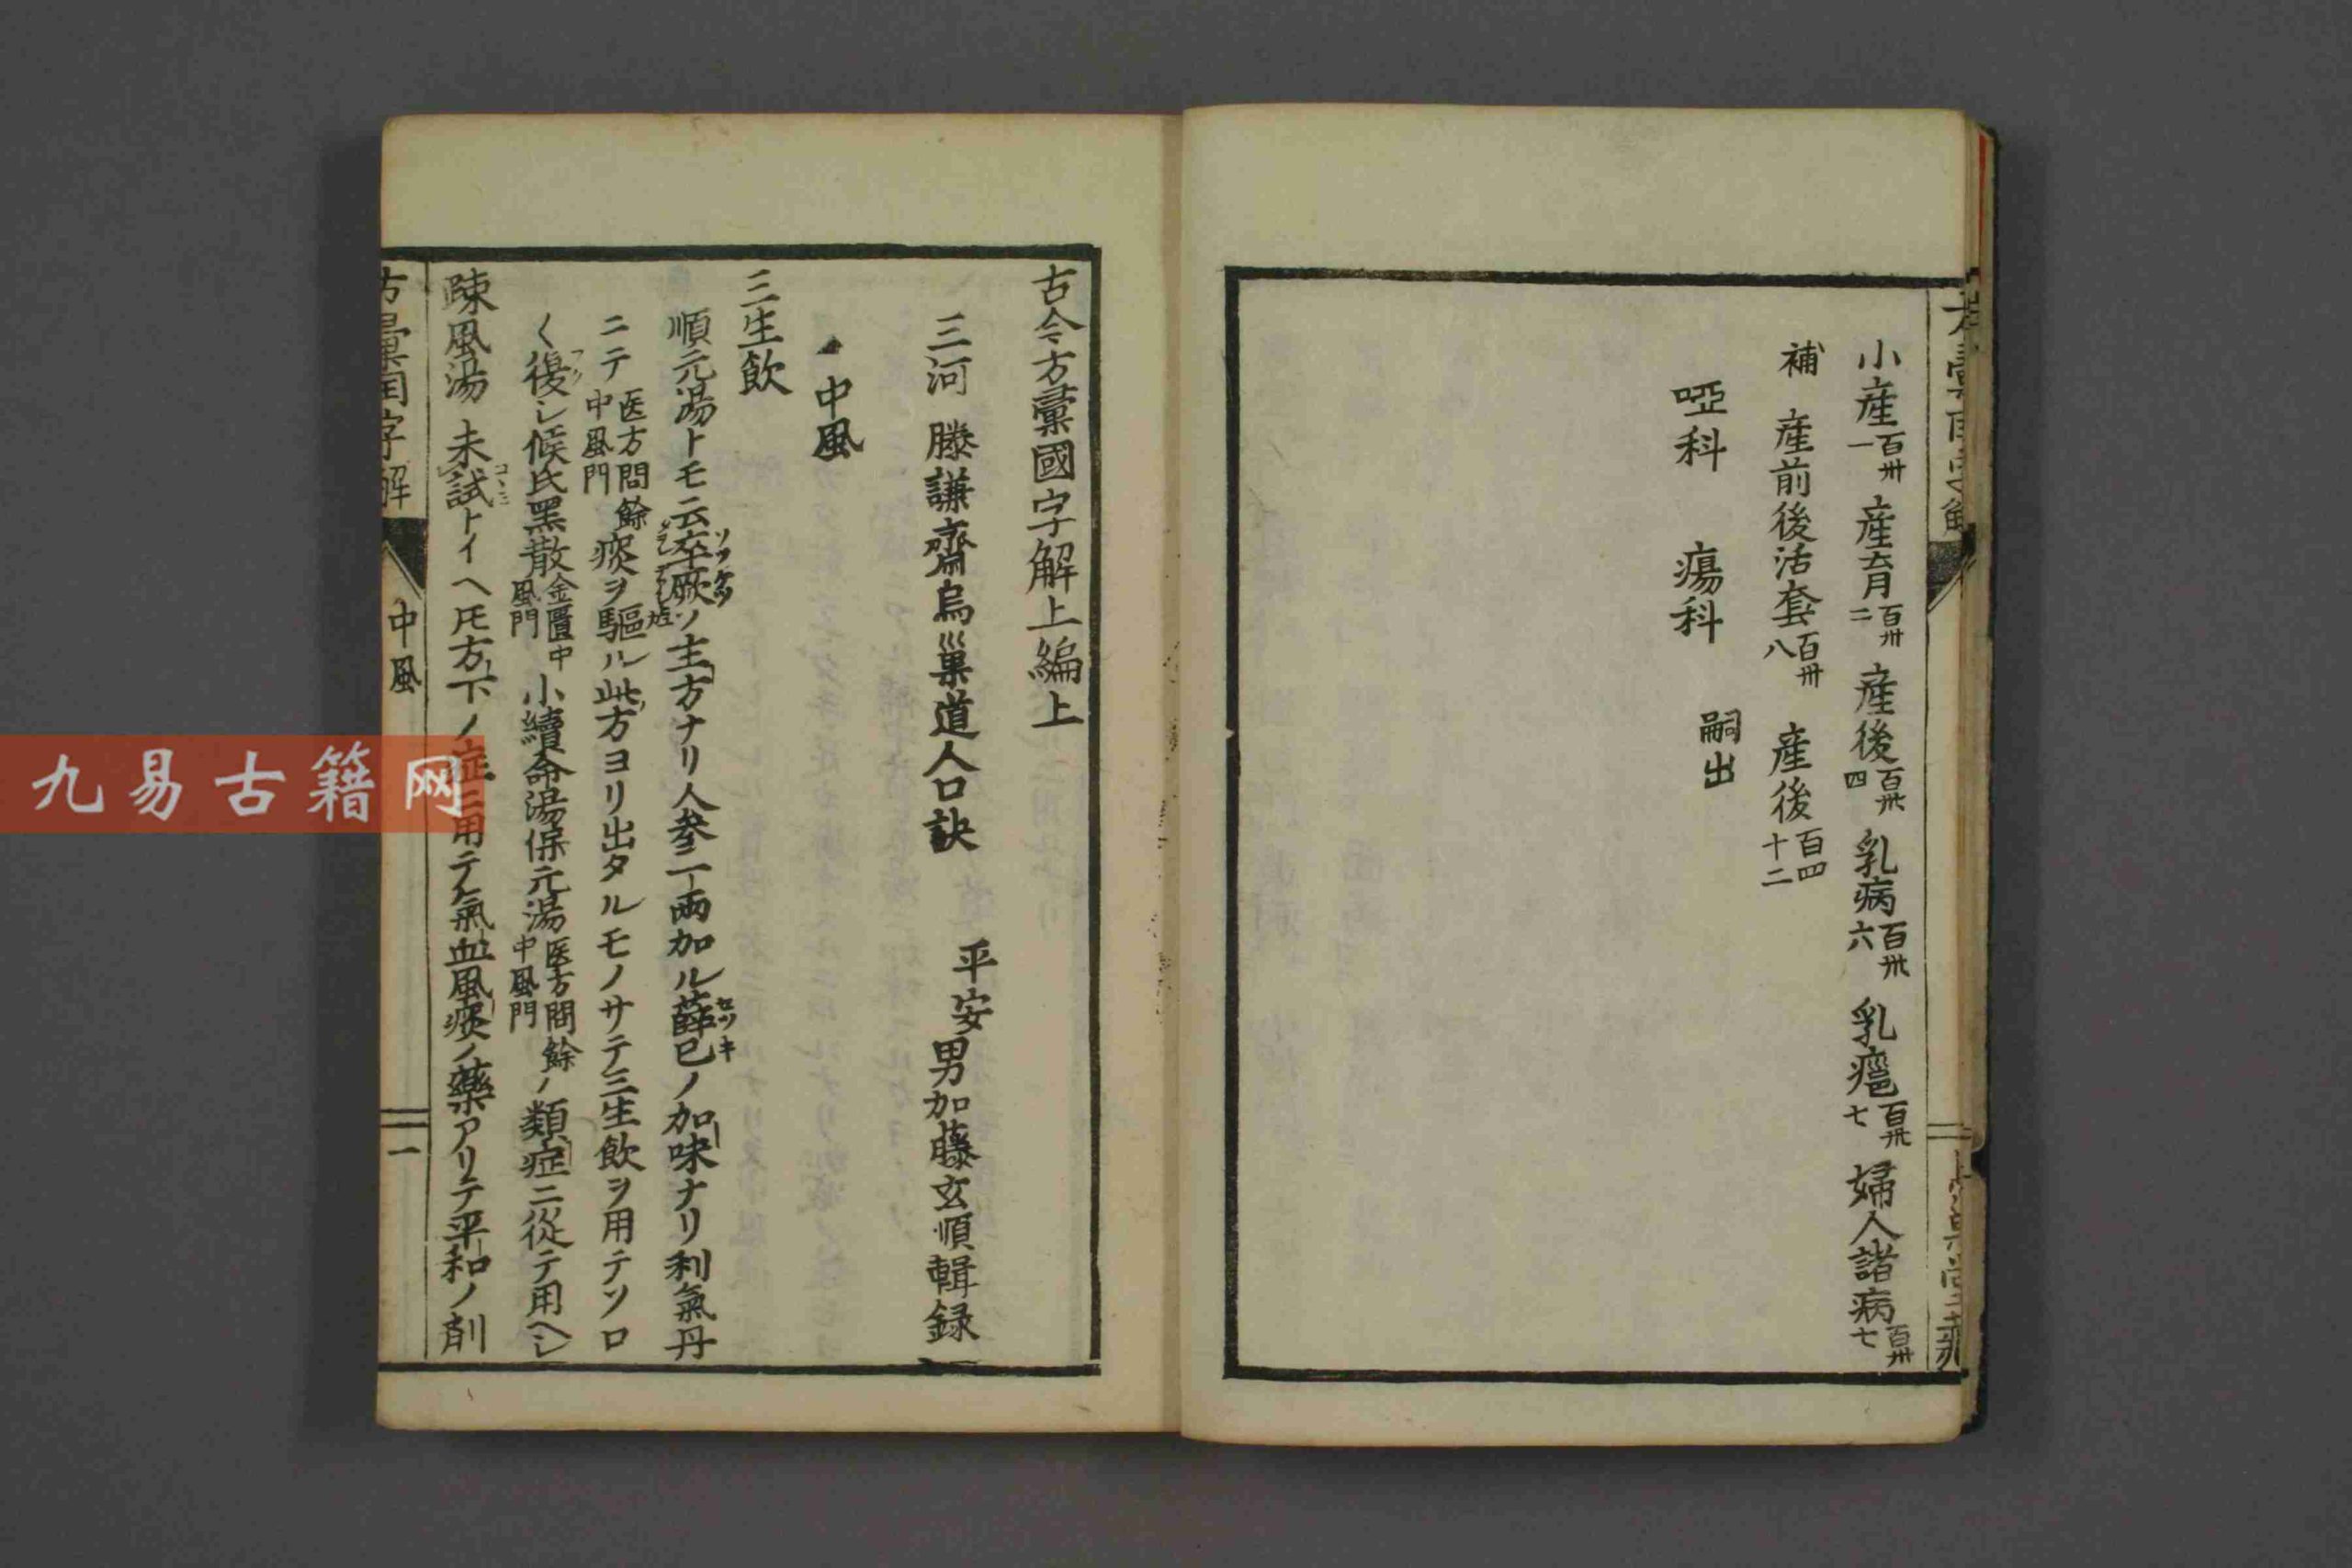 小産百卅一 産育百卅二 産後百卅四 乳病百卅六 乳癰百卅七 婦人諸病百卅七
補 産前後活套百卅八 産後百四十二
啞科 瘍科 嗣出
古今方彙國字解上編上
三河 滕謙齋烏巢道人口訣 平安 男加藤玄順輯録
中風
三生飲
順元湯トモ云卒厥ノ主方ナリ人參二一両加ル薛己ノ加味ナリ利氣丹
ニテ医方問餘中風門痰ヲ驅ル此方ヨリ出タルモノサテ三生飲ヲ用テソロ
〱復シ候氏黑散金匱中風門小續命湯保元湯医方問餘中風門ノ類症ニ從テ用ヘシ
疎風湯 未試トイヘ𪜈方下ノ症ニ用テ氣血風痰ノ藥アリテ平和ノ剤
方彙国字解 中風 一
九易古籍网